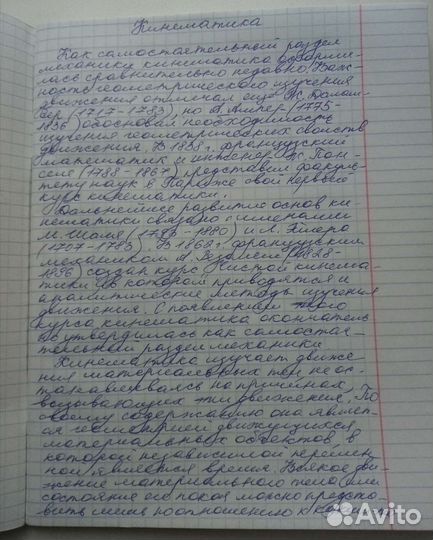 Кинематика
Как самостоятельный раздел
механики кинематика оформи-
лась сравнительно недавно. Важ-
ность геометрического изучения
движения отмечал ещё Ж. Далам-
бер (1717-1783), но А. Ампер (1775-
1836) обосновал необходимость
изучения геометрических свойств
движения. В 1838 г. французский
математик и инженер Ж. Пон-
селе (1788-1867) представил факуль-
тету наук в Париже свой первый
курс кинематики.
Дальнейшее развитие основ ки
нематики связано с именами
М. Шаля (1793-1880) и Л. Эйлера
(1707-1783). В 1862 г. французским
механиком А. Резалем (1828-
1896) создан курс чистой кинема-
тики, в котором приводятся и
аналитические методы изучения
движения. С появлением этого
курса кинематика окончатель
но утвердилась как самостоя-
тельный раздел механики.
Кинематика изучает движе-
ния материальных тел не ос-
танавливаясь на причинах,
вызывающих эти движения. По
своему содержанию она являет-
ся геометрией движущихся
материальных объектов, в
которой независимой перемен-
ной является время. Всякое дви-
жение материального тела или
состояние его покоя можно предста-
вить лишь по отношению к
Avito